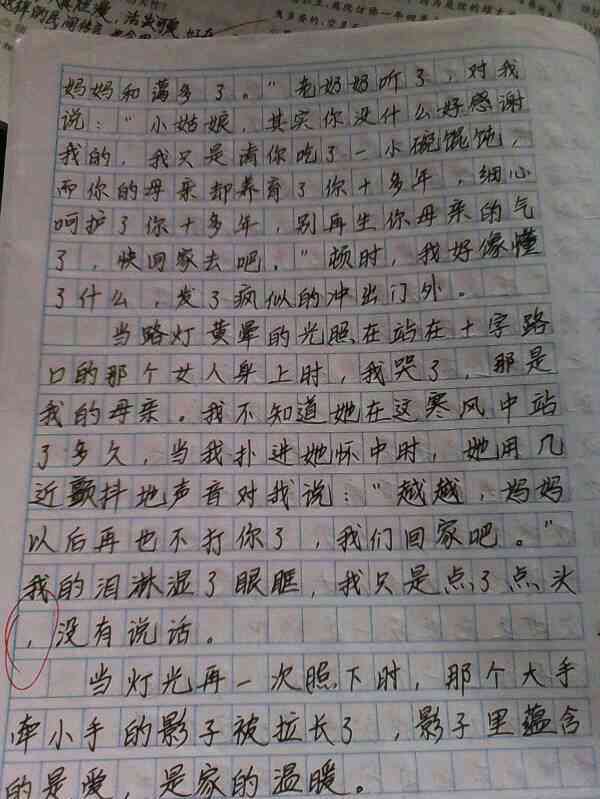 妈妈和蔼多了。”老奶奶听了，对我
说：“小姑娘，其实你没什么好感谢
我的，我只是请你吃了一小碗馄饨，
而你的母亲却养育了你十多年，细心
呵护了你十多年，别再生你母亲的气
了，快回家去吧。”顿时，我好像懂
了什么，发了疯似的冲出门外。
当路灯黄晕的光照在站在十字路
口的那个女人身上时，我哭了，那是
我的母亲。我不知道她在这寒风中站
了多久，当我扑进她怀中时，她用几
近颤抖地声音对我说：“越越，妈妈
以后再也不打你了，我们回家吧。”
我的泪淋湿了眼眶，我只是点了点头
，没有说话。
当灯光再一次照下时，那个大手
牵小手的影子被拉长了，影子里蕴含
的是爱，是家的温暖。